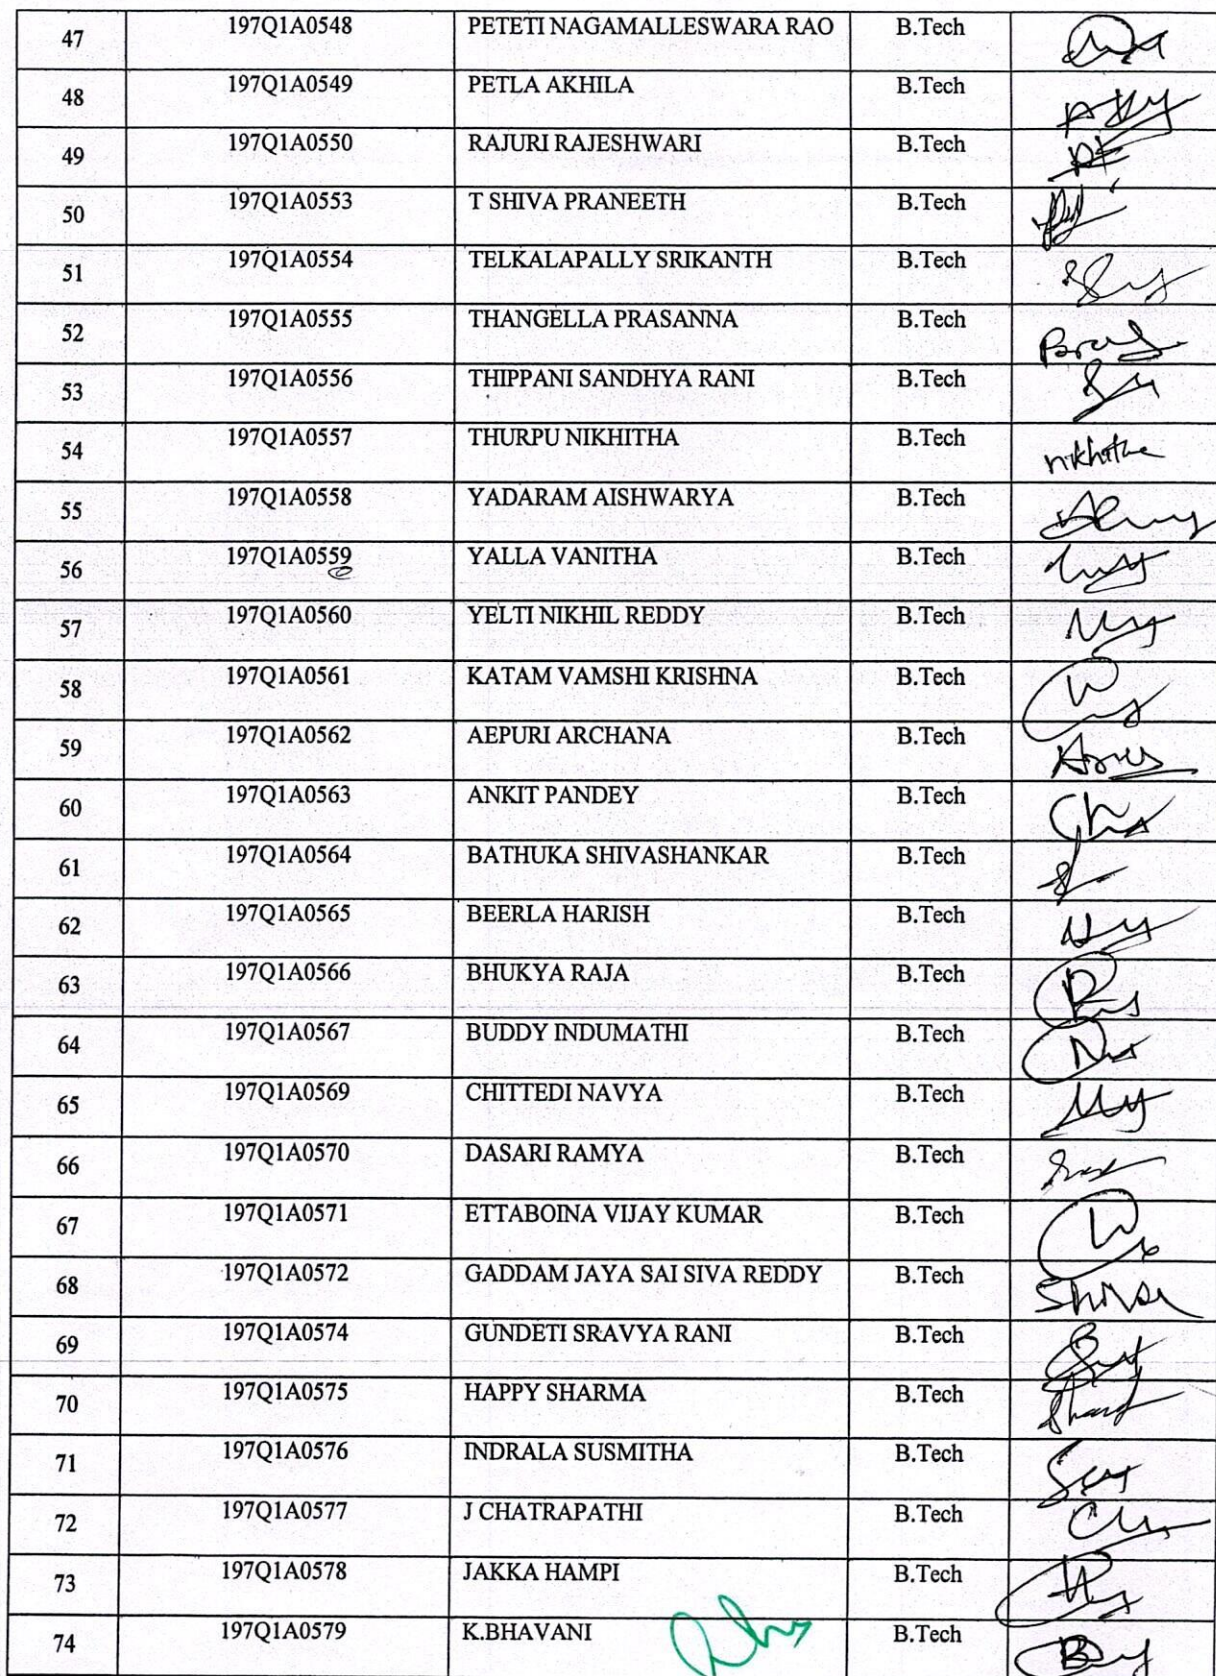 47 197Q1A0548 PETETI NAGAMALLESWARA RAO B.Tech
48 197Q1A0549 PETLA AKHILA B.Tech
49 197Q1A0550 RAJURI RAJESHWARI B.Tech
50 197Q1A0553 T SHIVA PRANEETH B.Tech
51 197Q1A0554 TELKALAPALLY SRIKANTH B.Tech
52 197Q1A0555 THANGELLA PRASANNA B.Tech
53 197Q1A0556 THIPPANI SANDHYA RANI B.Tech
54 197Q1A0557 THURPU NIKHITHA B.Tech nikhitha
55 197Q1A0558 YADARAM AISHWARYA B.Tech
56 197Q1A0559 YALLA VANITHA B.Tech
57 197Q1A0560 YELTI NIKHIL REDDY B.Tech
58 197Q1A0561 KATAM VAMSHI KRISHNA B.Tech
59 197Q1A0562 AEPURI ARCHANA B.Tech
60 197Q1A0563 ANKIT PANDEY B.Tech
61 197Q1A0564 BATHUKA SHIVASHANKAR B.Tech
62 197Q1A0565 BEERLA HARISH B.Tech
63 197Q1A0566 BHUKYA RAJA B.Tech
64 197Q1A0567 BUDDY INDUMATHI B.Tech
65 197Q1A0569 CHITTEDI NAVYA B.Tech
66 197Q1A0570 DASARI RAMYA B.Tech
67 197Q1A0571 ETTABOINA VIJAY KUMAR B.Tech
68 197Q1A0572 GADDAM JAYA SAI SIVA REDDY B.Tech
69 197Q1A0574 GUNDETI SRAVYA RANI B.Tech
70 197Q1A0575 HAPPY SHARMA B.Tech
71 197Q1A0576 INDRALA SUSMITHA B.Tech
72 197Q1A0577 J CHATRAPATHI B.Tech
73 197Q1A0578 JAKKA HAMPI B.Tech
74 197Q1A0579 K.BHAVANI B.Tech